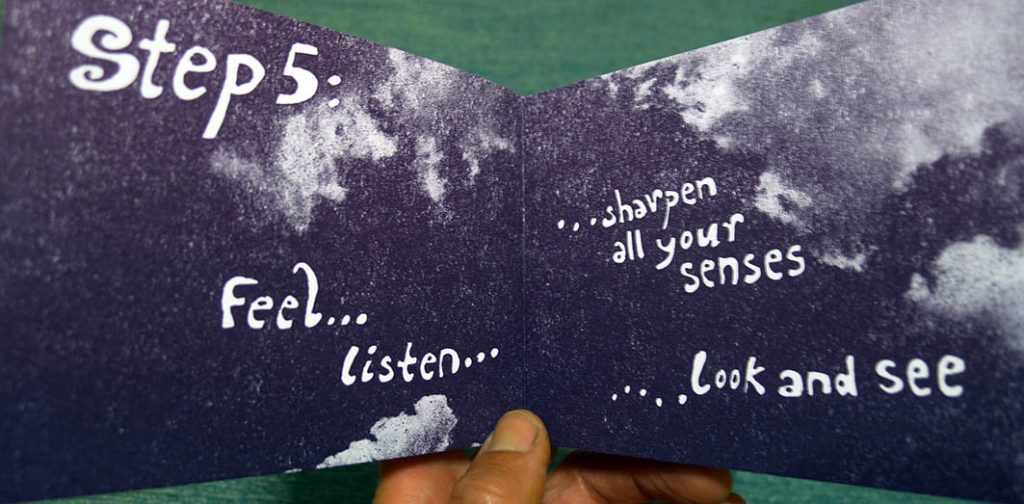 Step 5:
Feel...
listen...
...sharpen
all your
senses
.....look and see